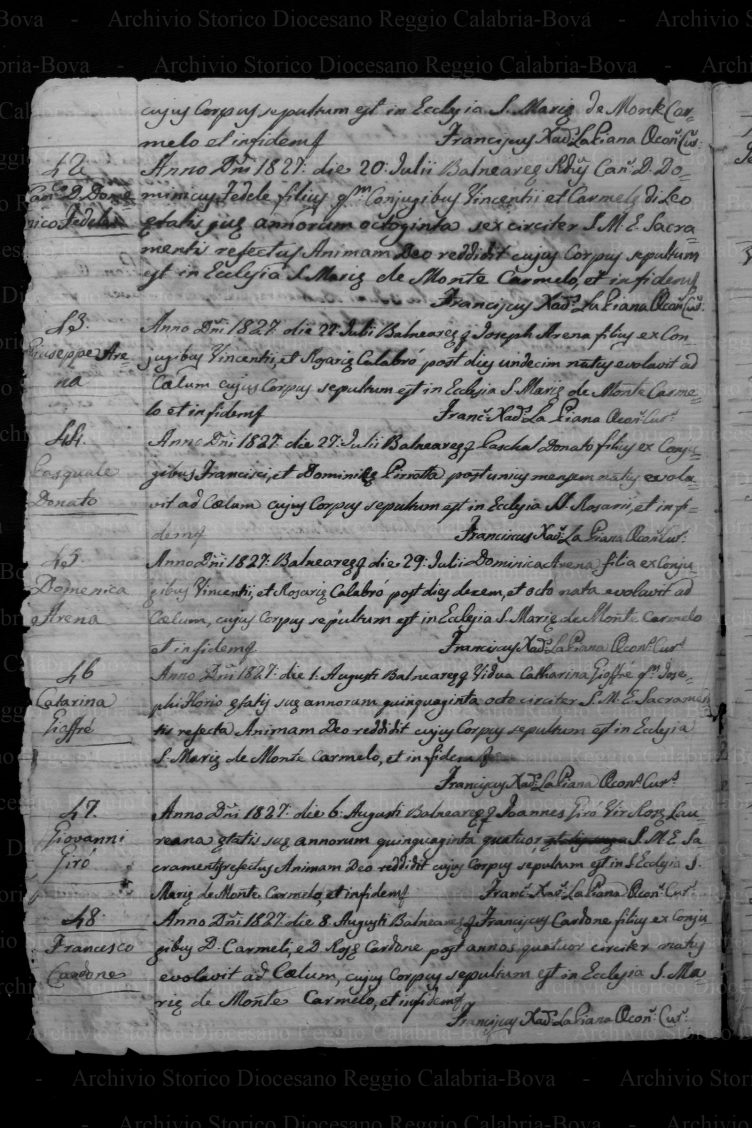 Archivio Storico Diocesano Reggio Calabria-Bova
cujus Corpus sepultum est in Ecclesia S. Mariæ de Monte Car-
melo et in fidem
Franciscus Xav. La Piana Œcon. Cur.
42
Can.co D. Dome-
nico Fedele
Anno Dñi 1827: die 20: Julii Balneareæ Rdus Can. D. Do-
minicus Fedele filius qm Conjugibus Vincentii et Carmelæ di Leo
etatis suæ annorum octoginta sex circiter S. M. E. Sacra-
mentis refectus Animam Deo reddidit cujus Corpus sepultum
est in Ecclesia S. Mariæ de Monte Carmelo, et in fidem
Franciscus Xav. La Piana Œcon. Cur.
43.
Giuseppe Are-
na
Anno Dñi 1827. die 22: Julii Balneareæ Joseph Arena filius ex Con-
jugibus Vincentii, et Rosariæ Calabrò post dies undecim natus evolavit ad
Cœlum cujus Corpus sepultum est in Ecclesia S. Mariæ de Monte Carme-
lo et in fidem
Franc. Xav. La Piana Œcon. Cur.
44.
Pasquale
Donato
Anno Dñi 1827: die 27: Julii Balneareæ Paschal Donato filius ex Conju-
gibus Francisci, et Dominicæ Pirrotta post unius mensem natus evola-
vit ad Cœlum cujus Corpus sepultum est in Ecclesia SS. Rosarii, et in fi-
dem
Franciscus Xav. La Piana Œcon. Cur.
45.
Domenica
Arena
Anno Dñi 1827: Balneareæ die 29: Julii Dominica Arena filia ex Conju-
gibus Vincentii, et Rosariæ Calabrò post dies decem, et octo nata evolavit ad
Cœlum, cujus Corpus sepultum est in Ecclesia S. Mariæ de Monte Carmelo
et in fidem
Franciscus Xav. La Piana Œcon. Cur.
46
Catarina
Gioffré
Anno Dñi 1827: die 1: Augusti Balneareæ Vidua Catharina Gioffré qm Jose-
phi Florio ætatis suæ annorum quinquaginta octo circiter S. M. E. Sacramen
tis refecta Animam Deo reddidit cujus Corpus sepultum est in Ecclesia
S. Mariæ de Monte Carmelo, et in fidem
Franciscus Xav. La Piana Œcon. Cur.
47.
Giovanni
Girò
Anno Dñi 1827: die 6: Augusti Balneareæ Joannes Girò Vir Rosæ Lau-
reana ætatis suæ annorum quinquaginta quatuor S. M. E. Sa-
cramentis refectus Animam Deo reddidit cujus Corpus sepultum est in Ecclesia S.
Mariæ de Monte Carmelo, et in fidem
Franc. Xav. La Piana Œcon. Cur.
48.
Francesco
Cardone
Anno Dñi 1827 die 8 Augusti Balneareæ Franciscus Cardone filius ex Conju
gibus D. Carmeli, e D. Rosæ Cardone post annos quatuor circiter natus
evolavit ad Cœlum, cujus Corpus sepultum est in Ecclesia S. Ma
riæ de Monte Carmelo, et in fidem
Franciscus Xav. La Piana Œcon. Cur.
Archivio Storico Diocesano Reggio Calabria-Bova